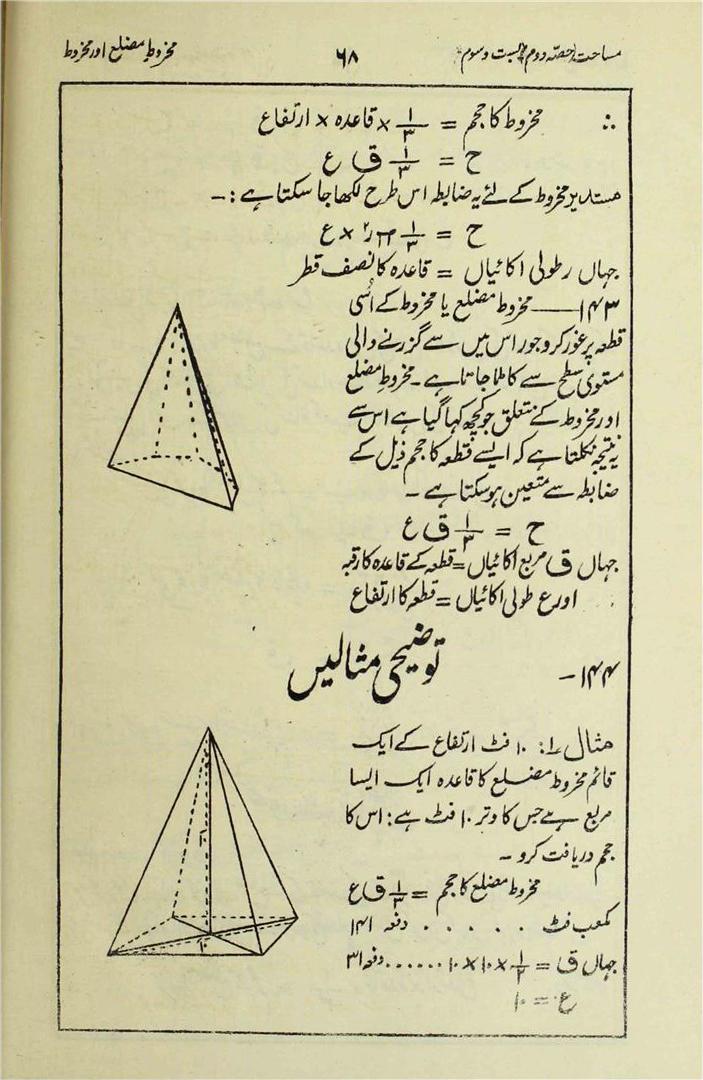 مساحت حصہ دوم بست و سوم ۶۸ مخروط مضلع اور مخروط
∴ مخروط کا حجم = ۱/۳ × قاعدہ × ارتفاع
ح = ۱/۳ ق ع
مستدیر مخروط کے لئے یہ ضابطہ اس طرح لکھا جا سکتا ہے :-
ح = ۱/۳ π ر۲ × ع
جہاں ر طولی اکائیاں = قاعدہ کا نصف قطر
۱۴۳ — مخروط مضلع یا مخروط کے اُسی
قطعہ پر غور کرو جو راس میں سے گزرنے والی
مستوی سطح سے کاٹا جاتا ہے۔ مخروط مضلع
اور مخروط کے متعلق جو کچھ کہا گیا ہے اس سے
یہ نتیجہ نکلتا ہے کہ ایسے قطعہ کا حجم ذیل کے
ضابطہ سے متعین ہو سکتا ہے ۔
ح = ۱/۳ ق ع
جہاں ق مربع اکائیاں = قطعہ کے قاعدہ کا رقبہ
اور ع طولی اکائیاں = قطعہ کا ارتفاع
۱۴۴- توضیحی مثالیں
مثال ۱: ۱۰ فٹ ارتفاع کے ایک
قائم مخروط مضلع کا قاعدہ ایک ایسا
مربع ہے جس کا وتر ۱۰ فٹ ہے: اس کا
حجم دریافت کرو ۔
مخروط مضلع کا حجم = ۱/۳ ق ع
مکعب فٹ . . . . . دفعہ ۱۴۱
جہاں ق = ۱/۲ × ۱۰ × ۱۰ ...... دفعہ ۳۱
ع = ۱۰